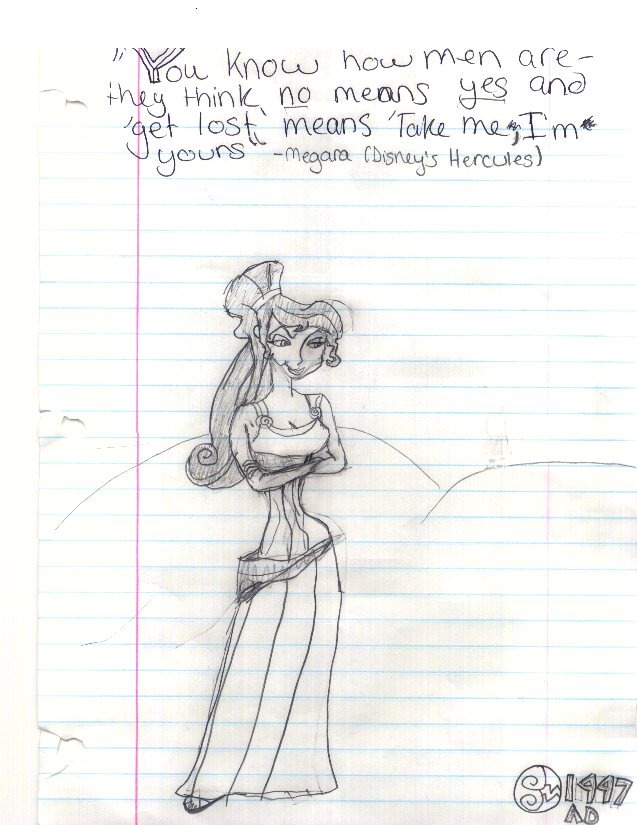 "You know how men are-
they think 'no' means 'yes' and
'get lost' means 'Take me, I'm
yours'" -Megara (Disney's Hercules)
SW 1997
AD